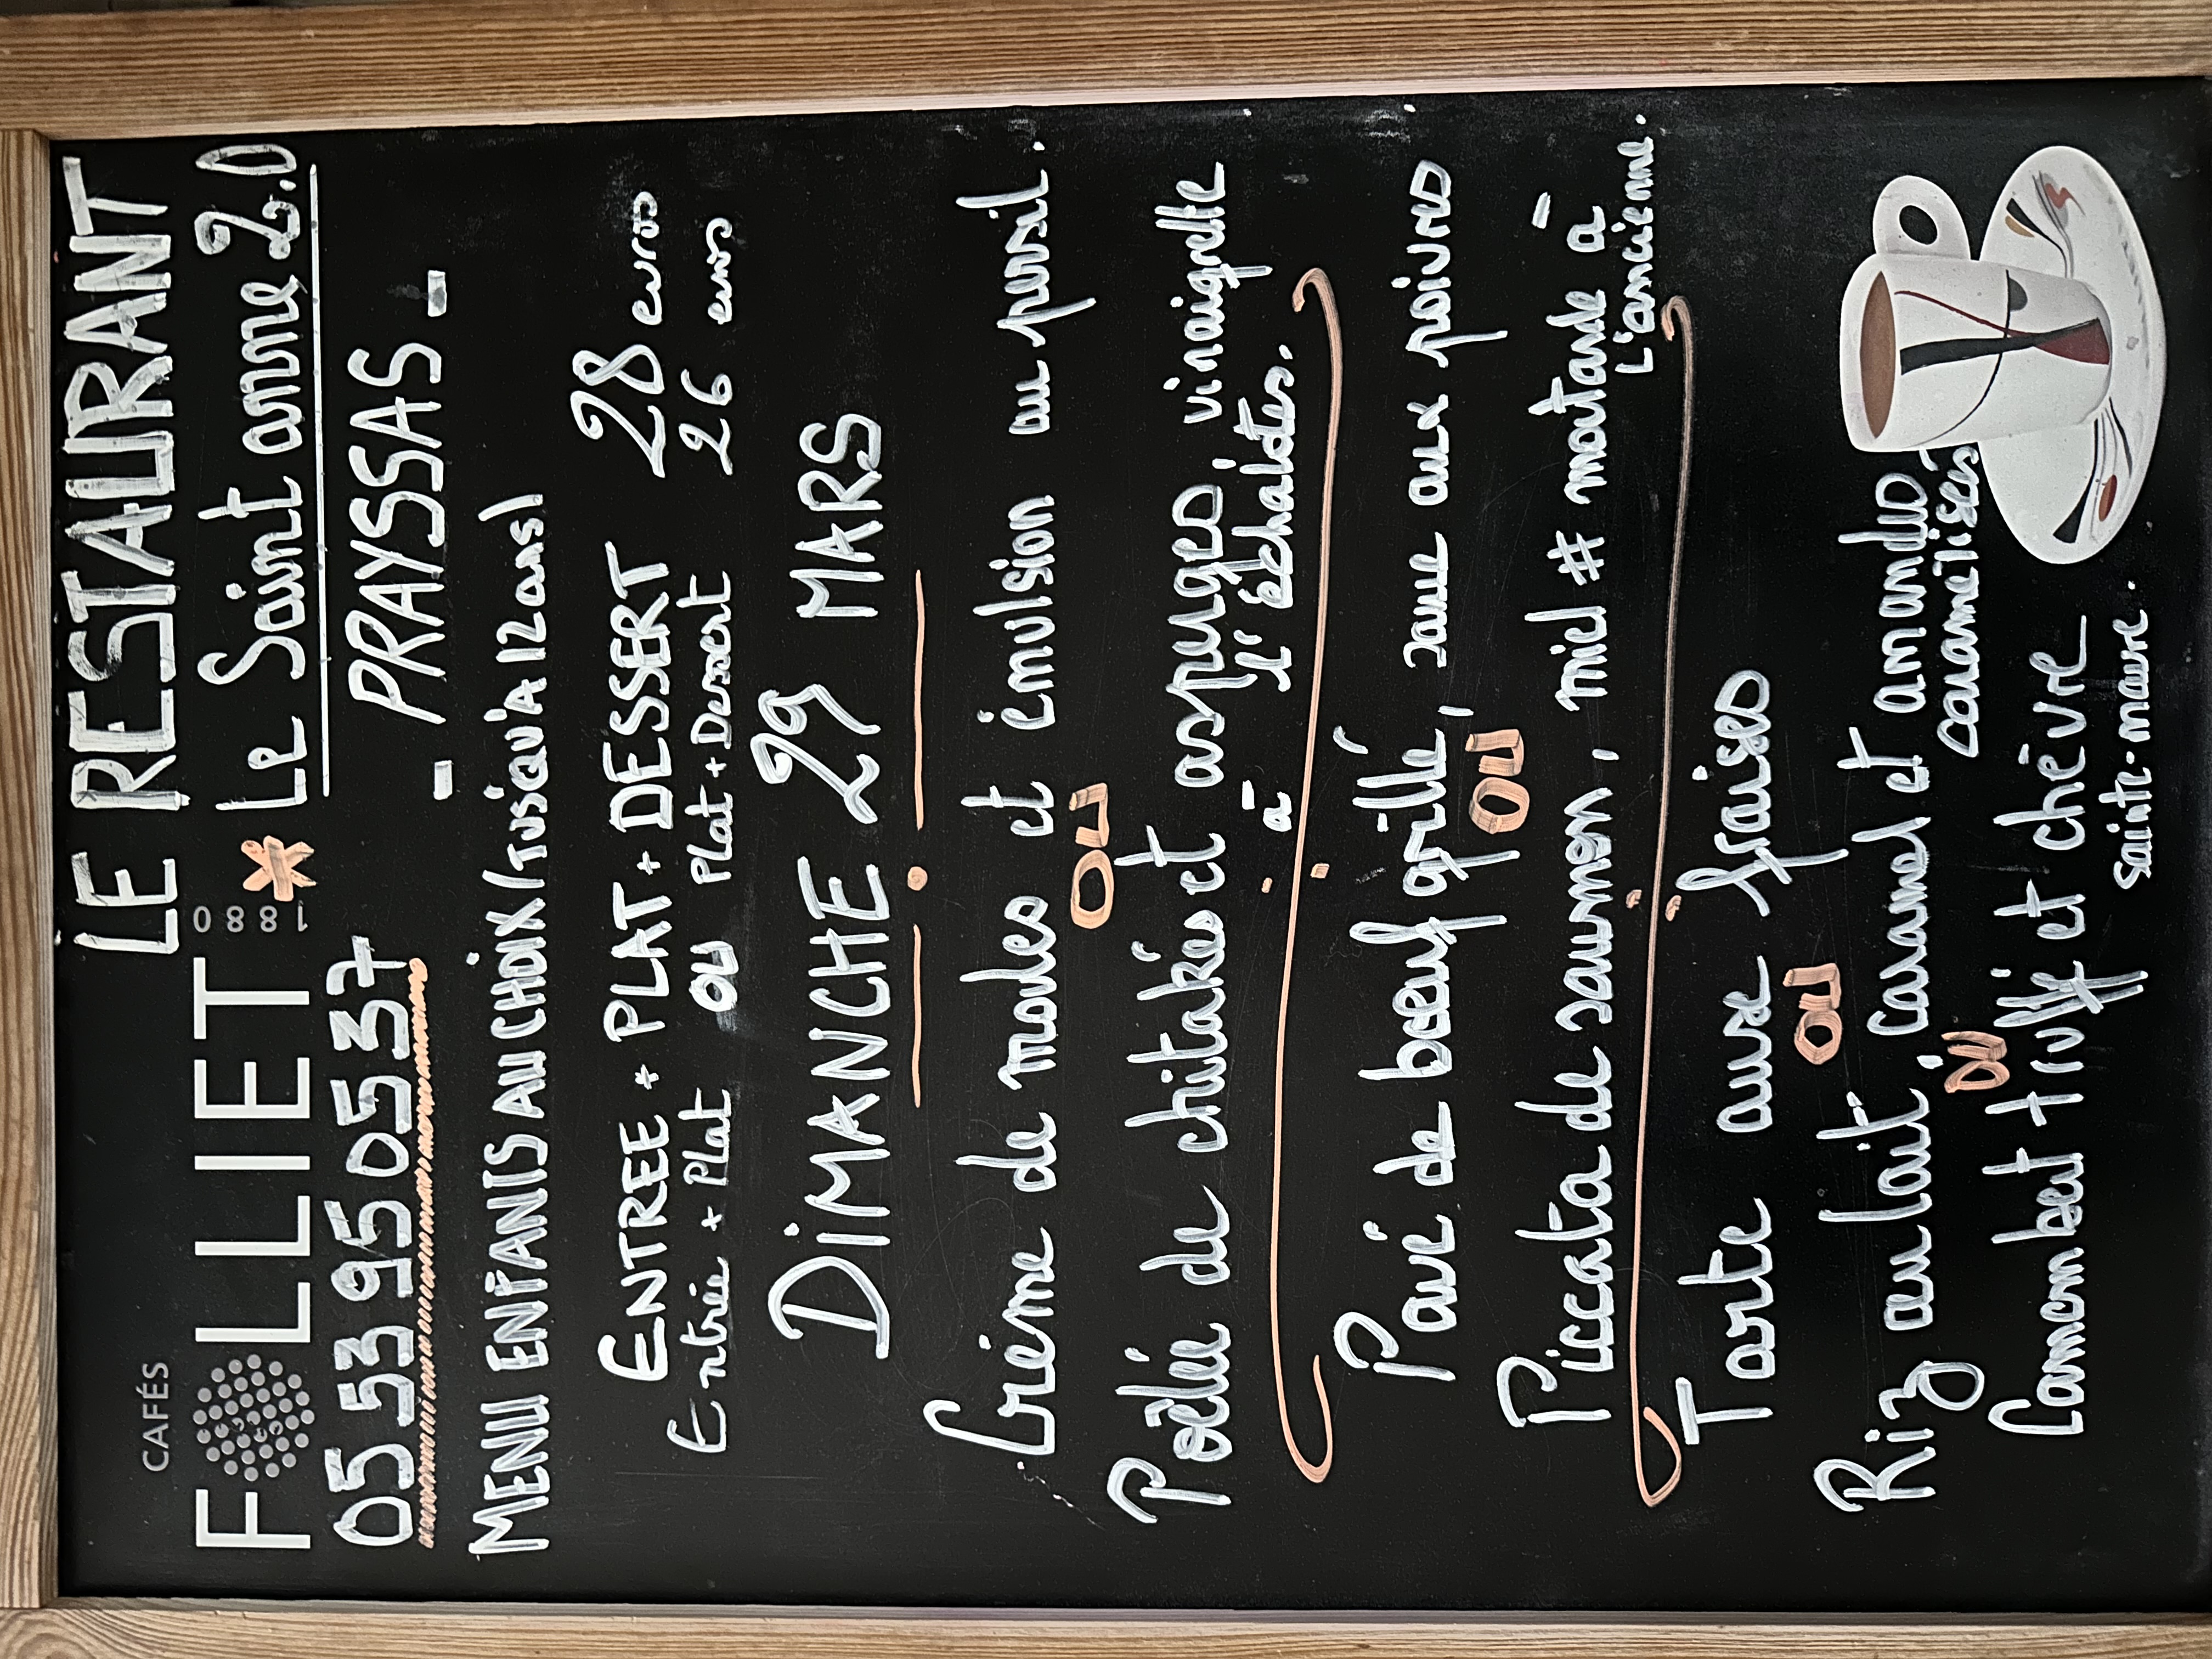 LE RESTAURANT
CAFÉS
FOLLIET 1880
* Le Saint anne 2.0
05 53 95 05 37
- PRAYSSAS -
MENU ENFANTS AU CHOIX (JUSQU'A 12 ans)
ENTREE + PLAT + DESSERT 28 euros
Entrée + Plat OU Plat + Dessert 26 euros
DIMANCHE 29 MARS
Crème de moules et émulsion au persil.
OU
Poêlée de chitakés et asperges, vinaigrette
à l'échalotes.
Pavé de boeuf grillé, sauce aux poivres
OU
Piccata de saumon, miel # moutarde à
L'ancienne.
Tarte aux fraises
OU
Riz au lait, caramel et amandes
caramélisées
OU
Camembert truffé et chèvre
sainte-maure.